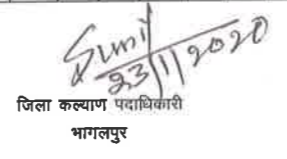 Sunil
23/1/2020
जिला कल्याण पदाधिकारी
भागलपुर